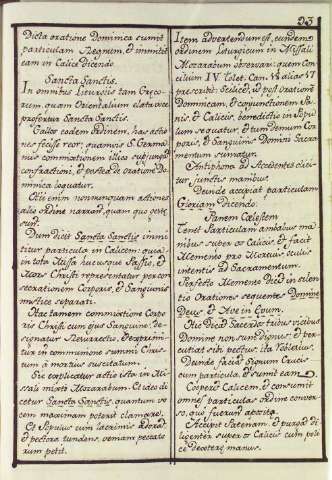 93
Dicta oratione Dominica sumit
particulam Regnum, et immittit
eam in Calice Dicendo.
Sancta Sanctis.
In omnibus Liturgiis tam Grecorum,
quam Orientalium elata voce
profertur Sancta Sanctis.
Gallos eodem ordine, has actiones
fecisse reor; quamvis S. Germanus
commotionem illico subjungat
confractioni, et postea de oratione Dominica
loquatur.
Ast enim nonnunquam actiones
alio ordine narrant, quam quo gestæ
sunt.
Dum dicit Sancta Sanctis immittitur
particula in Calicem: quia
in tota Missa hucusque Passio, et
Mors Christi representatur per consecrationem
Corporis, et Sanguinis
mistice separati.
Hac tamen commixtione Corporis
Christi cum ejus Sanguine designatur
Resurrectio, et exprimitur
in communione summi Christum
a mortuis suscitatum.
Sic explicatur actio ista in Missali
mixto Mozarabum. Et ideo dicetur
Sancta Sanctis, quantum vocem
maximam poterit clamare.
Et Populus cum lacrimis adorad,
et pectora tundens, veniam peccatorum
petit.
Item advertendum est, eundem
ordinem Liturgicum in Missali
Mozarabum observari: quem Concilium
IV. Tolet. Can. 18 alias 17
prescribit: Scilicet, ut post orationem
Dominicam, et conjunctionem Panis,
et Calicis, benedictio in Populum
sequatur, et tum demum Corporis,
et Sanguinis Domini Sacramentum
sumatur.
Antiphona ad Accedentes dicitur
junctis manibus.
Deinde accipiat particulam
Gloriam Dicendo:
Panem Cælestem
Tenet Particulam ambabus manibus
super os Calicis, et facit
Memento pro Mortuis oculis
intentis ad Sacramentum.
Perfecto Memento Dicit in silentio
Orationes sequentes Domine
Deus et Ave in Evum.
His Dictis Sacerdos tribus vicibus
Domine non sum dignus, et percutiat
sibi pectus, ita Robleaius.
Deinde faciat signum Crucis
cum particula, et sumit eam.
Cooperit Calicem, et consumit
omnes particulas ordine converso,
quo fuerunt apositæ.
Accipit Patenam, et purgat diligenter
super os Calicis cum police
dexteræ manus.